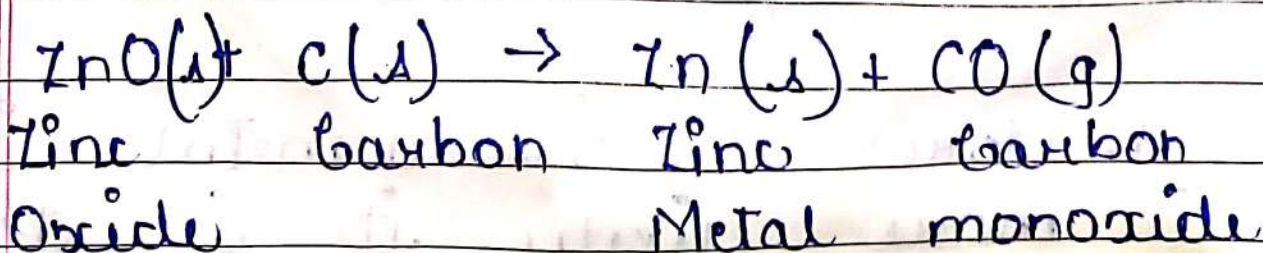 ZnO(s)+ C(s) → Zn(s) + CO(g)
Zinc Carbon Zinc Carbon
Oxide Metal monoxide